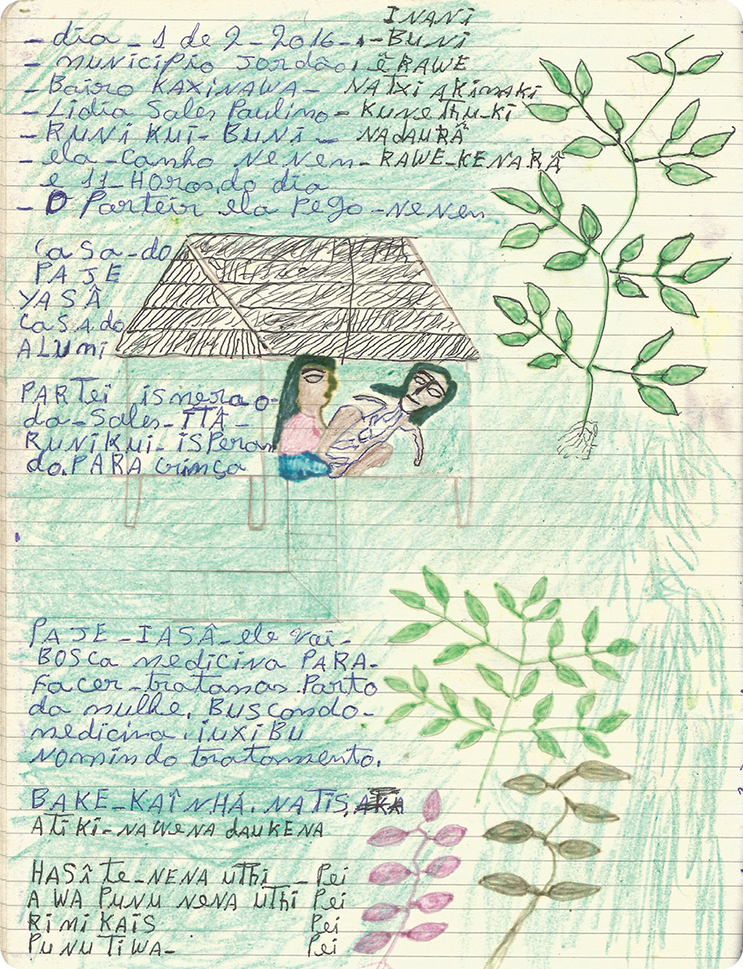 INANI
- dia - 1 de 2 - 2016 - 1 - BUNI
- municipio Jordão, ê RAWE
- Bairo KAXINAWA - NATXI AKIMAKI
- Lidia Sales Paulino - KUNETHU-KI
- RUNI KUI - BUNI - NADAURÂ
- ela - Canho NENEM - RAWE-KENARÂ
e 11 HORAS do dia
- O Parteir ela Pego - NENEM
CASA-do
PAJE
YASÂ
CASA do
ALUMI
PARTEi ismerao-
da - Sales - ITÂ -
RUNIKUI - isperan
do. PARA Crinça
PAJE - IASÂ - ele vai -
BOSCA medicina PARA -
FACER - tratamas. Parto
da mulhe. BUSCONDO -
medicina. iUXIBU
Nomindo tratamento.
BAKE - KAÎNHÁ. NATIS,
Atiki - NAWENA DAUKENA
HASÎ te - NENA UTHI - Pei
A WA PUNU NENA UTHI Pei
RIMI KAIS Pei
PUNU TIWA - Pei